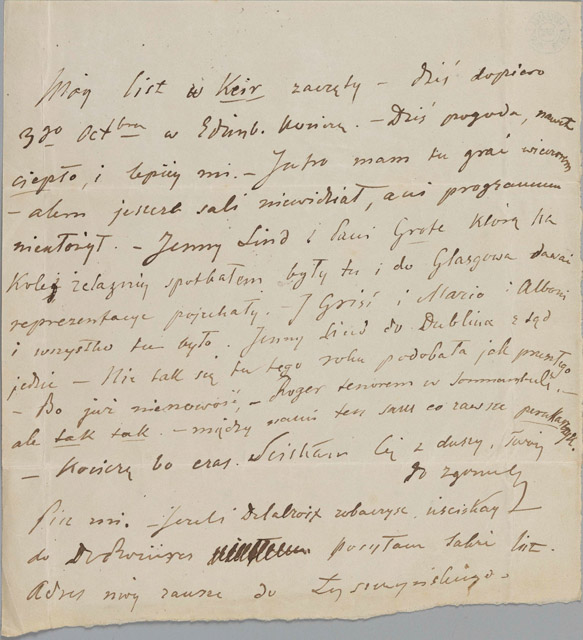 Mój list w Keir zaczęty – dziś dopiero
3go Octbra w Edimb. kończę. – Dziś pogoda, nawet
ciepło, i lepiej mi. – Jutro mam tu grać wieczorem
– alem jeszcze sali niewidział, ani programmu
nieułożył. – Jenny Lind i Pani Grote którą na
Kolei żelaznej spotkałem były tu i do Glasgowa dawać
reprezentacye pojechały. – I Grisi i Mario i Alboni
i wszystko tu było. Jenny Lind do Dublina z tąd
jedzie – Nie tak się tu tego roku podobała jak przeszłego
– Bo już nienowość, – Roger tenorem w Somnambuli. –
ale tak tak. – między nami ten sam co zawsze
– Kończę bo czas. Ściskam Cię z duszy. Twój
do zgonu
Pisz mi. – Jeżeli Delacroix zobaczysz, uściskaj
do De Rozières posyłam także list.
Adres mój zawsze do Łyszczyńskiego.